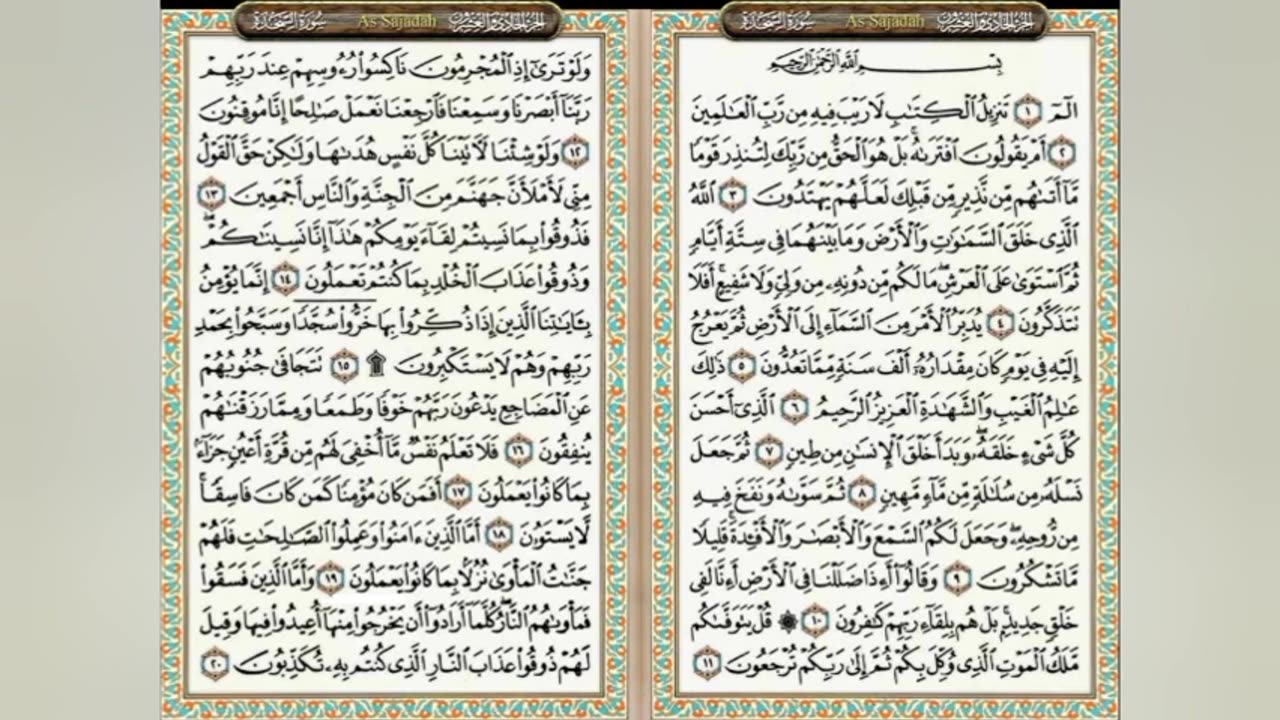 الجزء الحادي والعشرون
As Sajadah
سورة السجدة
بِسْمِ اللَّهِ الرَّحْمَٰنِ الرَّحِيمِ
الٓمٓ ١ تَنزِيلُ الْكِتَٰبِ لَا رَيْبَ فِيهِ مِن رَّبِّ الْعَٰلَمِينَ
٢ أَمْ يَقُولُونَ افْتَرَىٰهُ ۚ بَلْ هُوَ الْحَقُّ مِن رَّبِّكَ لِتُنذِرَ قَوْمًا
مَّآ أَتَىٰهُم مِّن نَّذِيرٍ مِّن قَبْلِكَ لَعَلَّهُمْ يَهْتَدُونَ ٣ اللَّهُ
الَّذِى خَلَقَ السَّمَٰوَٰتِ وَالْأَرْضَ وَمَا بَيْنَهُمَا فِى سِتَّةِ أَيَّامٍ
ثُمَّ اسْتَوَىٰ عَلَى الْعَرْشِ ۖ مَا لَكُم مِّن دُونِهِۦ مِن وَلِىٍّ وَلَا شَفِيعٍ ۚ أَفَلَا
تَتَذَكَّرُونَ ٤ يُدَبِّرُ الْأَمْرَ مِنَ السَّمَآءِ إِلَى الْأَرْضِ ثُمَّ يَعْرُجُ
إِلَيْهِ فِى يَوْمٍ كَانَ مِقْدَارُهُۥٓ أَلْفَ سَنَةٍ مِّمَّا تَعُدُّونَ ٥ ذَٰلِكَ
عَٰلِمُ الْغَيْبِ وَالشَّهَٰدَةِ الْعَزِيزُ الرَّحِيمُ ٦ الَّذِىٓ أَحْسَنَ
كُلَّ شَىْءٍ خَلَقَهُۥ ۖ وَبَدَأَ خَلْقَ الْإِنسَٰنِ مِن طِينٍ ٧ ثُمَّ جَعَلَ
نَسْلَهُۥ مِن سُلَٰلَةٍ مِّن مَّآءٍ مَّهِينٍ ٨ ثُمَّ سَوَّىٰهُ وَنَفَخَ فِيهِ
مِن رُّوحِهِۦ ۖ وَجَعَلَ لَكُمُ السَّمْعَ وَالْأَبْصَٰرَ وَالْأَفْـِٔدَةَ ۚ قَلِيلًا
مَّا تَشْكُرُونَ ٩ وَقَالُوٓا۟ أَءِذَا ضَلَلْنَا فِى الْأَرْضِ أَءِنَّا لَفِى
خَلْقٍ جَدِيدٍۭ ۚ بَلْ هُم بِلِقَآءِ رَبِّهِمْ كَٰفِرُونَ ١٠ ۞ قُلْ يَتَوَفَّىٰكُم
مَّلَكُ الْمَوْتِ الَّذِى وُكِّلَ بِكُمْ ثُمَّ إِلَىٰ رَبِّكُمْ تُرْجَعُونَ ١١
الجزء الحادي والعشرون
As Sajadah
سورة السجدة
وَلَوْ تَرَىٰٓ إِذِ الْمُجْرِمُونَ نَاكِسُوا۟ رُءُوسِهِمْ عِندَ رَبِّهِمْ
رَبَّنَآ أَبْصَرْنَا وَسَمِعْنَا فَارْجِعْنَا نَعْمَلْ صَٰلِحًا إِنَّا مُوقِنُونَ
١٢ وَلَوْ شِئْنَا لَءَاتَيْنَا كُلَّ نَفْسٍ هُدَىٰهَا وَلَٰكِنْ حَقَّ الْقَوْلُ
مِنِّى لَأَمْلَأَنَّ جَهَنَّمَ مِنَ الْجِنَّةِ وَالنَّاسِ أَجْمَعِينَ ١٣
فَذُوقُوا۟ بِمَا نَسِيتُمْ لِقَآءَ يَوْمِكُمْ هَٰذَآ إِنَّا نَسِينَٰكُمْ ۖ
وَذُوقُوا۟ عَذَابَ الْخُلْدِ بِمَا كُنتُمْ تَعْمَلُونَ ١٤ إِنَّمَا يُؤْمِنُ
بِـَٔايَٰتِنَا الَّذِينَ إِذَا ذُكِّرُوا۟ بِهَا خَرُّوا۟ سُجَّدًا وَسَبَّحُوا۟ بِحَمْدِ
رَبِّهِمْ وَهُمْ لَا يَسْتَكْبِرُونَ ۩ ١٥ تَتَجَافَىٰ جُنُوبُهُمْ
عَنِ الْمَضَاجِعِ يَدْعُونَ رَبَّهُمْ خَوْفًا وَطَمَعًا وَمِمَّا رَزَقْنَٰهُمْ
يُنفِقُونَ ١٦ فَلَا تَعْلَمُ نَفْسٌ مَّآ أُخْفِىَ لَهُم مِّن قُرَّةِ أَعْيُنٍ جَزَآءًۢ
بِمَا كَانُوا۟ يَعْمَلُونَ ١٧ أَفَمَن كَانَ مُؤْمِنًا كَمَن كَانَ فَاسِقًا ۚ
لَّا يَسْتَوُۥنَ ١٨ أَمَّا الَّذِينَ ءَامَنُوا۟ وَعَمِلُوا۟ الصَّٰلِحَٰتِ فَلَهُمْ
جَنَّٰتُ الْمَأْوَىٰ نُزُلًۢا بِمَا كَانُوا۟ يَعْمَلُونَ ١٩ وَأَمَّا الَّذِينَ فَسَقُوا۟
فَمَأْوَىٰهُمُ النَّارُ ۖ كُلَّمَآ أَرَادُوٓا۟ أَن يَخْرُجُوا۟ مِنْهَآ أُعِيدُوا۟ فِيهَا وَقِيلَ
لَهُمْ ذُوقُوا۟ عَذَابَ النَّارِ الَّذِى كُنتُم بِهِۦ تُكَذِّبُونَ ٢٠